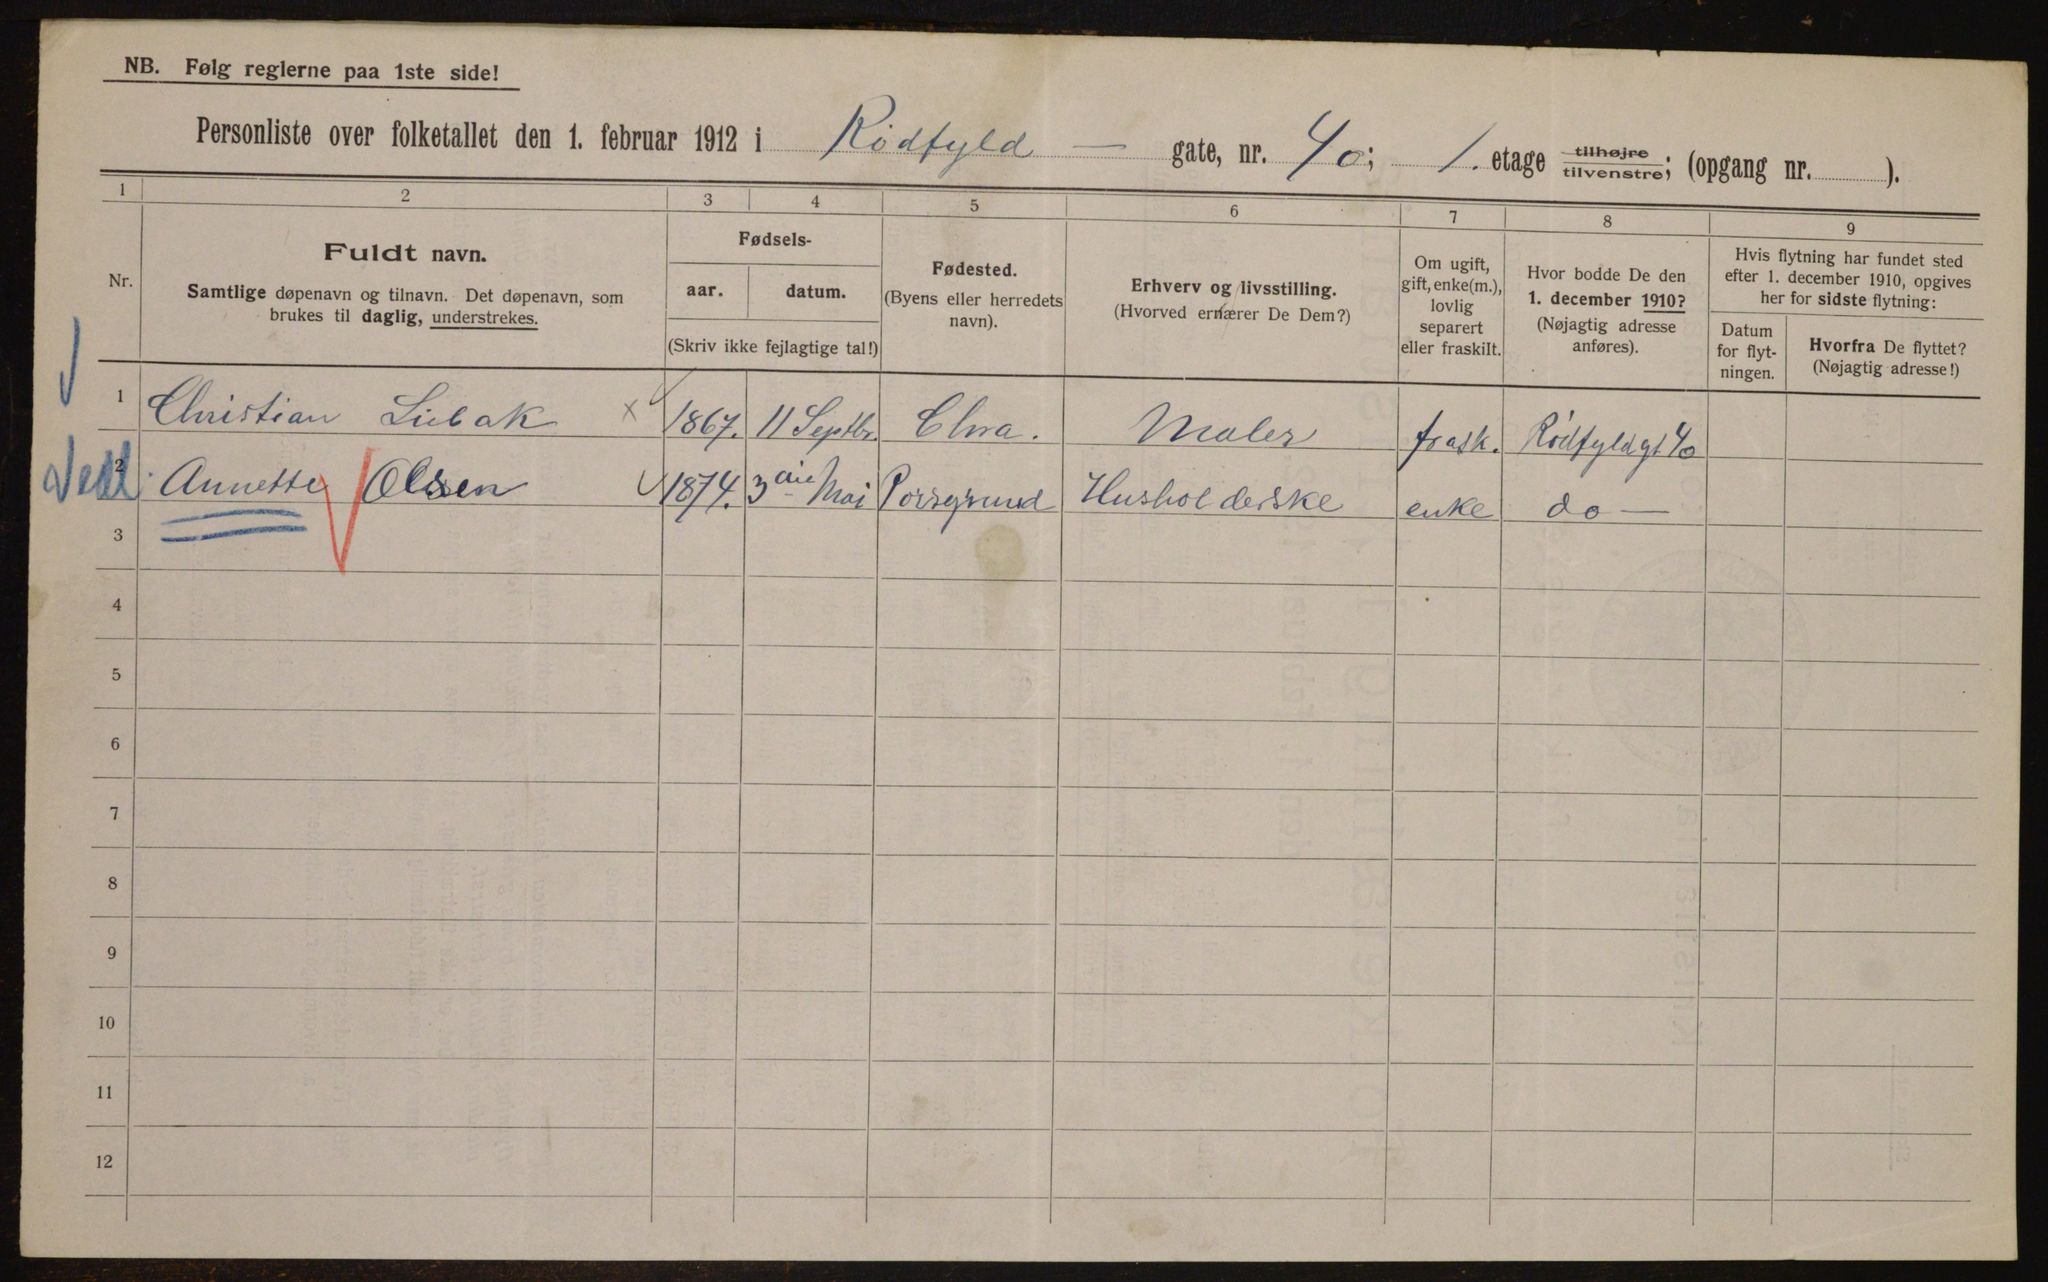 NB. Følg reglerne paa 1ste side!
Personliste over folketallet den 1. februar 1912 i Rødfyld — gate, nr. 40; 1. etage tilhøjre tilvenstre; (opgang nr. ).
1 2 3 4 5 6 7 8 9
Nr.
Fuldt navn.
Samtlige døpenavn og tilnavn. Det døpenavn, som
brukes til daglig, understrekes.
Fødsels-
aar. datum.
(Skriv ikke fejlagtige tal!)
Fødested.
(Byens eller herredets
navn).
Erhverv og livsstilling.
(Hvorved ernærer De Dem?)
Om ugift,
gift, enke(m.),
lovlig
separert
eller fraskilt.
Hvor bodde De den
1. december 1910?
(Nøjagtig adresse
anføres).
Hvis flytning har fundet sted
efter 1. december 1910, opgives
her for sidste flytning:
Datum
for flyt-
ningen.
Hvorfra De flyttet?
(Nøjagtig adresse!)
1 Christian Liebak x 1867. 11 Septbr. Chra. Maler frask. Rødfyldgt 40
2 Annette Olsen 1874. 3die Mai Porsgrund Husholderske enke do —
3
4
5
6
7
8
9
10
11
12